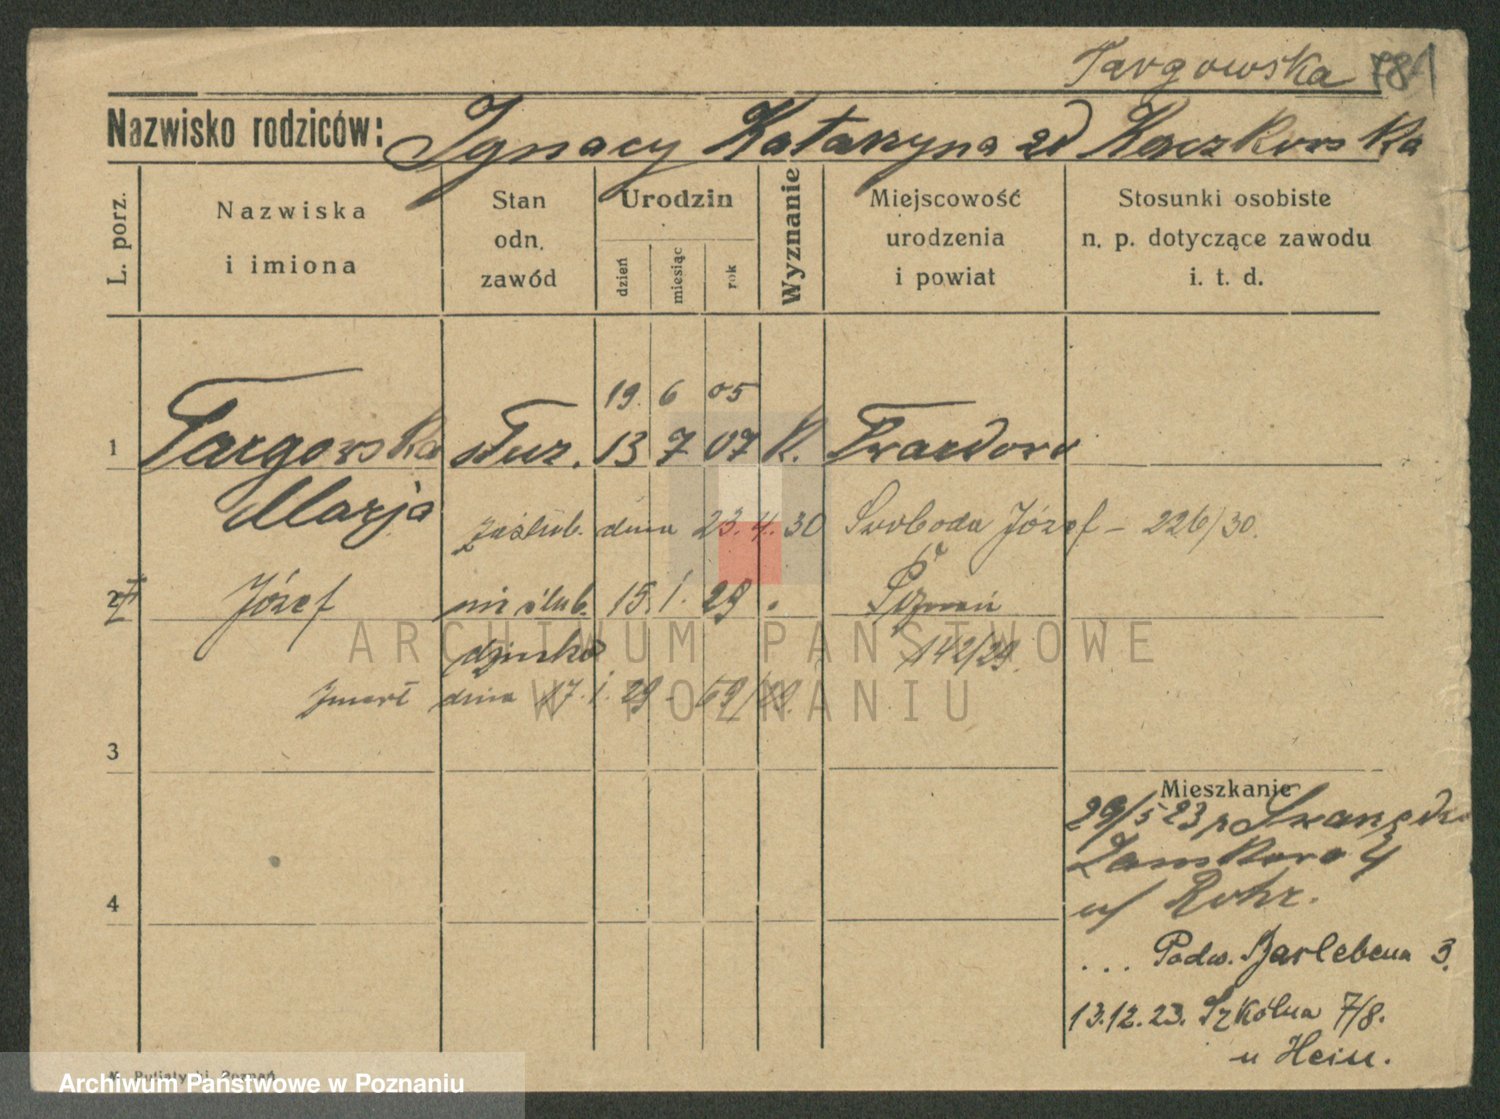 Targowska 781
Nazwisko rodziców: Ignacy Katarzyna zd Kaczkowska
L. porz.
Nazwiska
i imiona
Stan
odn.
zawód
Urodzin
dzień
miesiąc
rok
Wyznanie
Miejscowość
urodzenia
i powiat
Stosunki osobiste
n. p. dotyczące zawodu
i. t. d.
19. 6 05
1 Targowska służ. 13 7 07 K.
Marja
zaślub. dnia 23.4.30 Swoboda Józef – 226/30.
2 Józef nieślub. 15. 1. 29 Poznań
dziecko 142/29.
zmarł dnia 17. 1. 29 –
3
Mieszkanie
29/5 23 p
Zamkowa 4
u/ Rohr.
4
... Podw. Barlebena 3.
13.12.23. Szkólna 7/8.
u Hein.
ARCHIWUM PAŃSTWOWE
W POZNANIU
Poznań
Archiwum Państwowe w Poznaniu